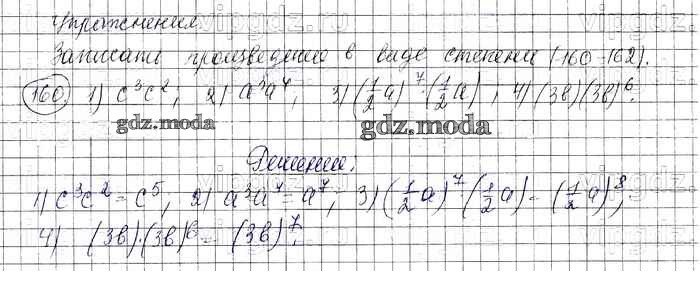 Упражнения
Записать произведение в виде степени (160-162).
160. 1) c³c²; 2) a³a⁴; 3) (1/2 a)⁷·(1/2 a); 4) (3в)(3в)⁶.
gdz.moda
gdz.moda
Решение:
1) c³c² = c⁵; 2) a³a⁴ = a⁷; 3) (1/2 a)⁷·(1/2 a) = (1/2 a)⁸;
4) (3в)·(3в)⁶ = (3в)⁷.